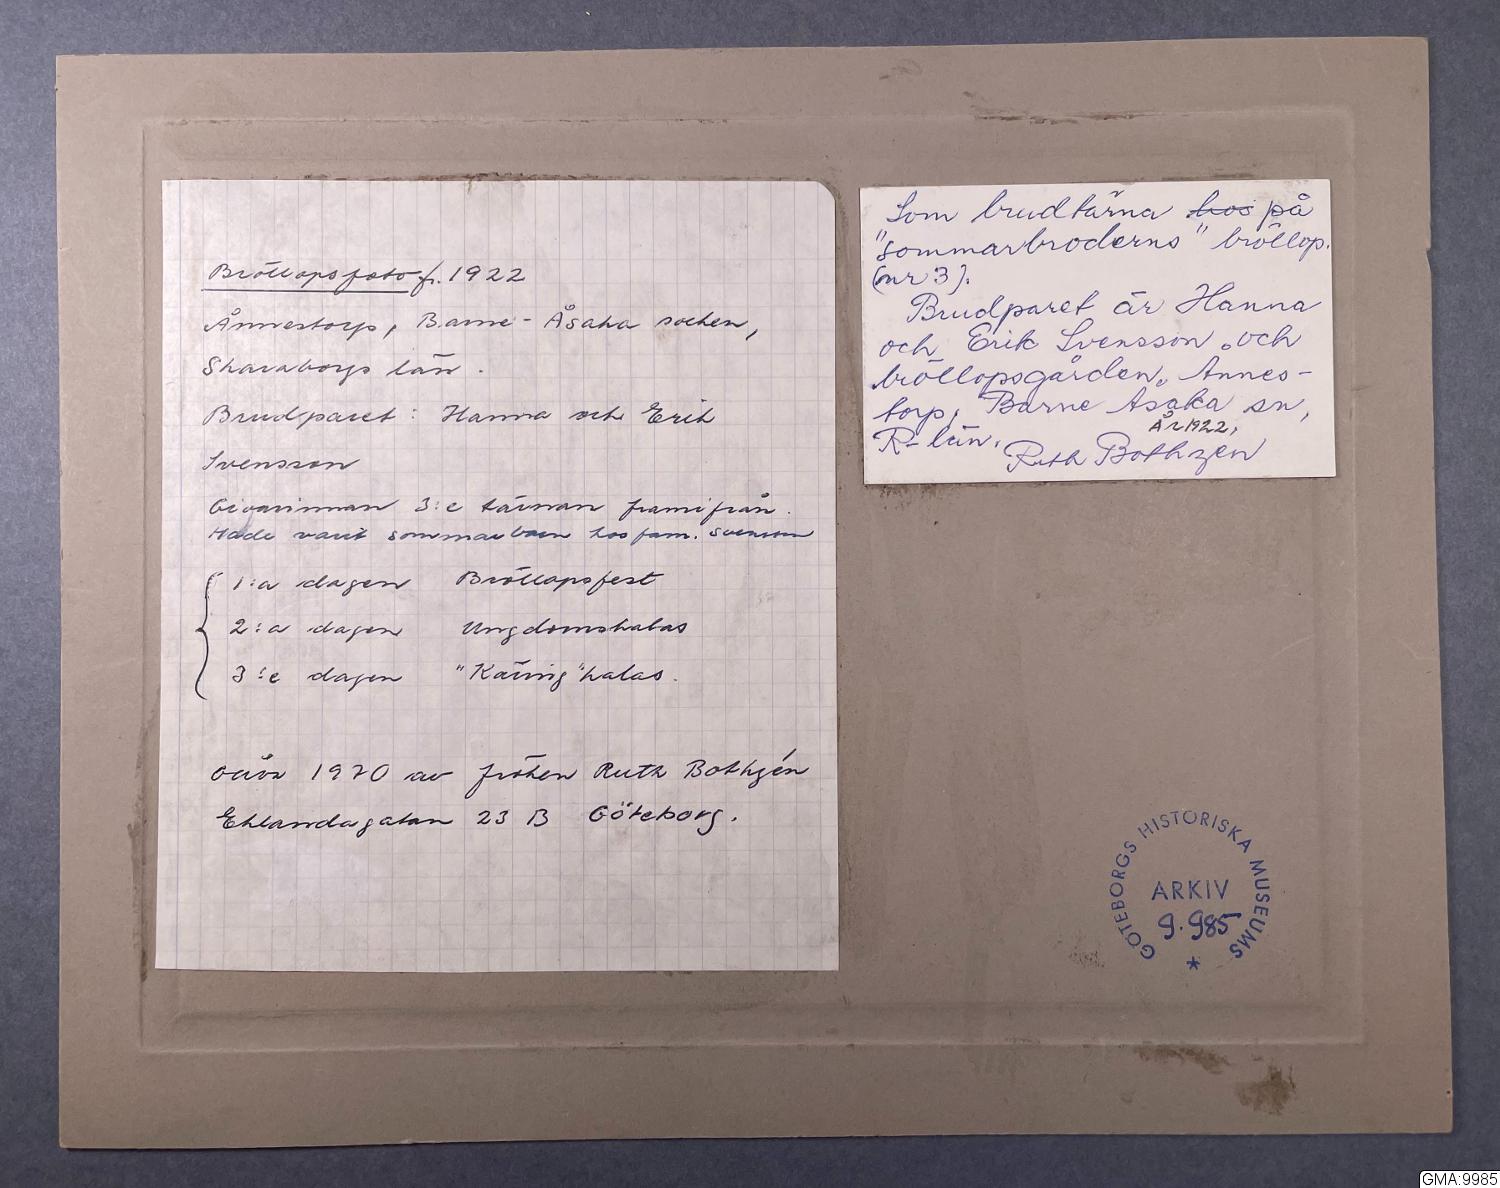 Bröllopsfoto fr. 1922
Ånnestorp, Barne-Åsaka socken,
Skaraborgs län.
Brudparet: Hanna och Erik
Svensson
Givarinnan 3:e tärnan framifrån.
Hade varit sommarbarn hos fam. Svensson
1:a dagen Bröllopsfest
2:a dagen Ungdomskalas
3:e dagen "Käring"kalas.
1970 av fröken Ruth Bothzén
Ehlandagatan 23 B Göteborg.
Som brudtärna hos på
"sommarbroderns" bröllop.
(nr 3).
Brudparet är Hanna
och Erik Svensson och
bröllopsgården, Annes-
torp, Barne Åsaka sn,
R-län. År 1922,
Ruth Bothzen
GÖTEBORGS HISTORISKA MUSEUMS
ARKIV
9.985
*
GMA:9985